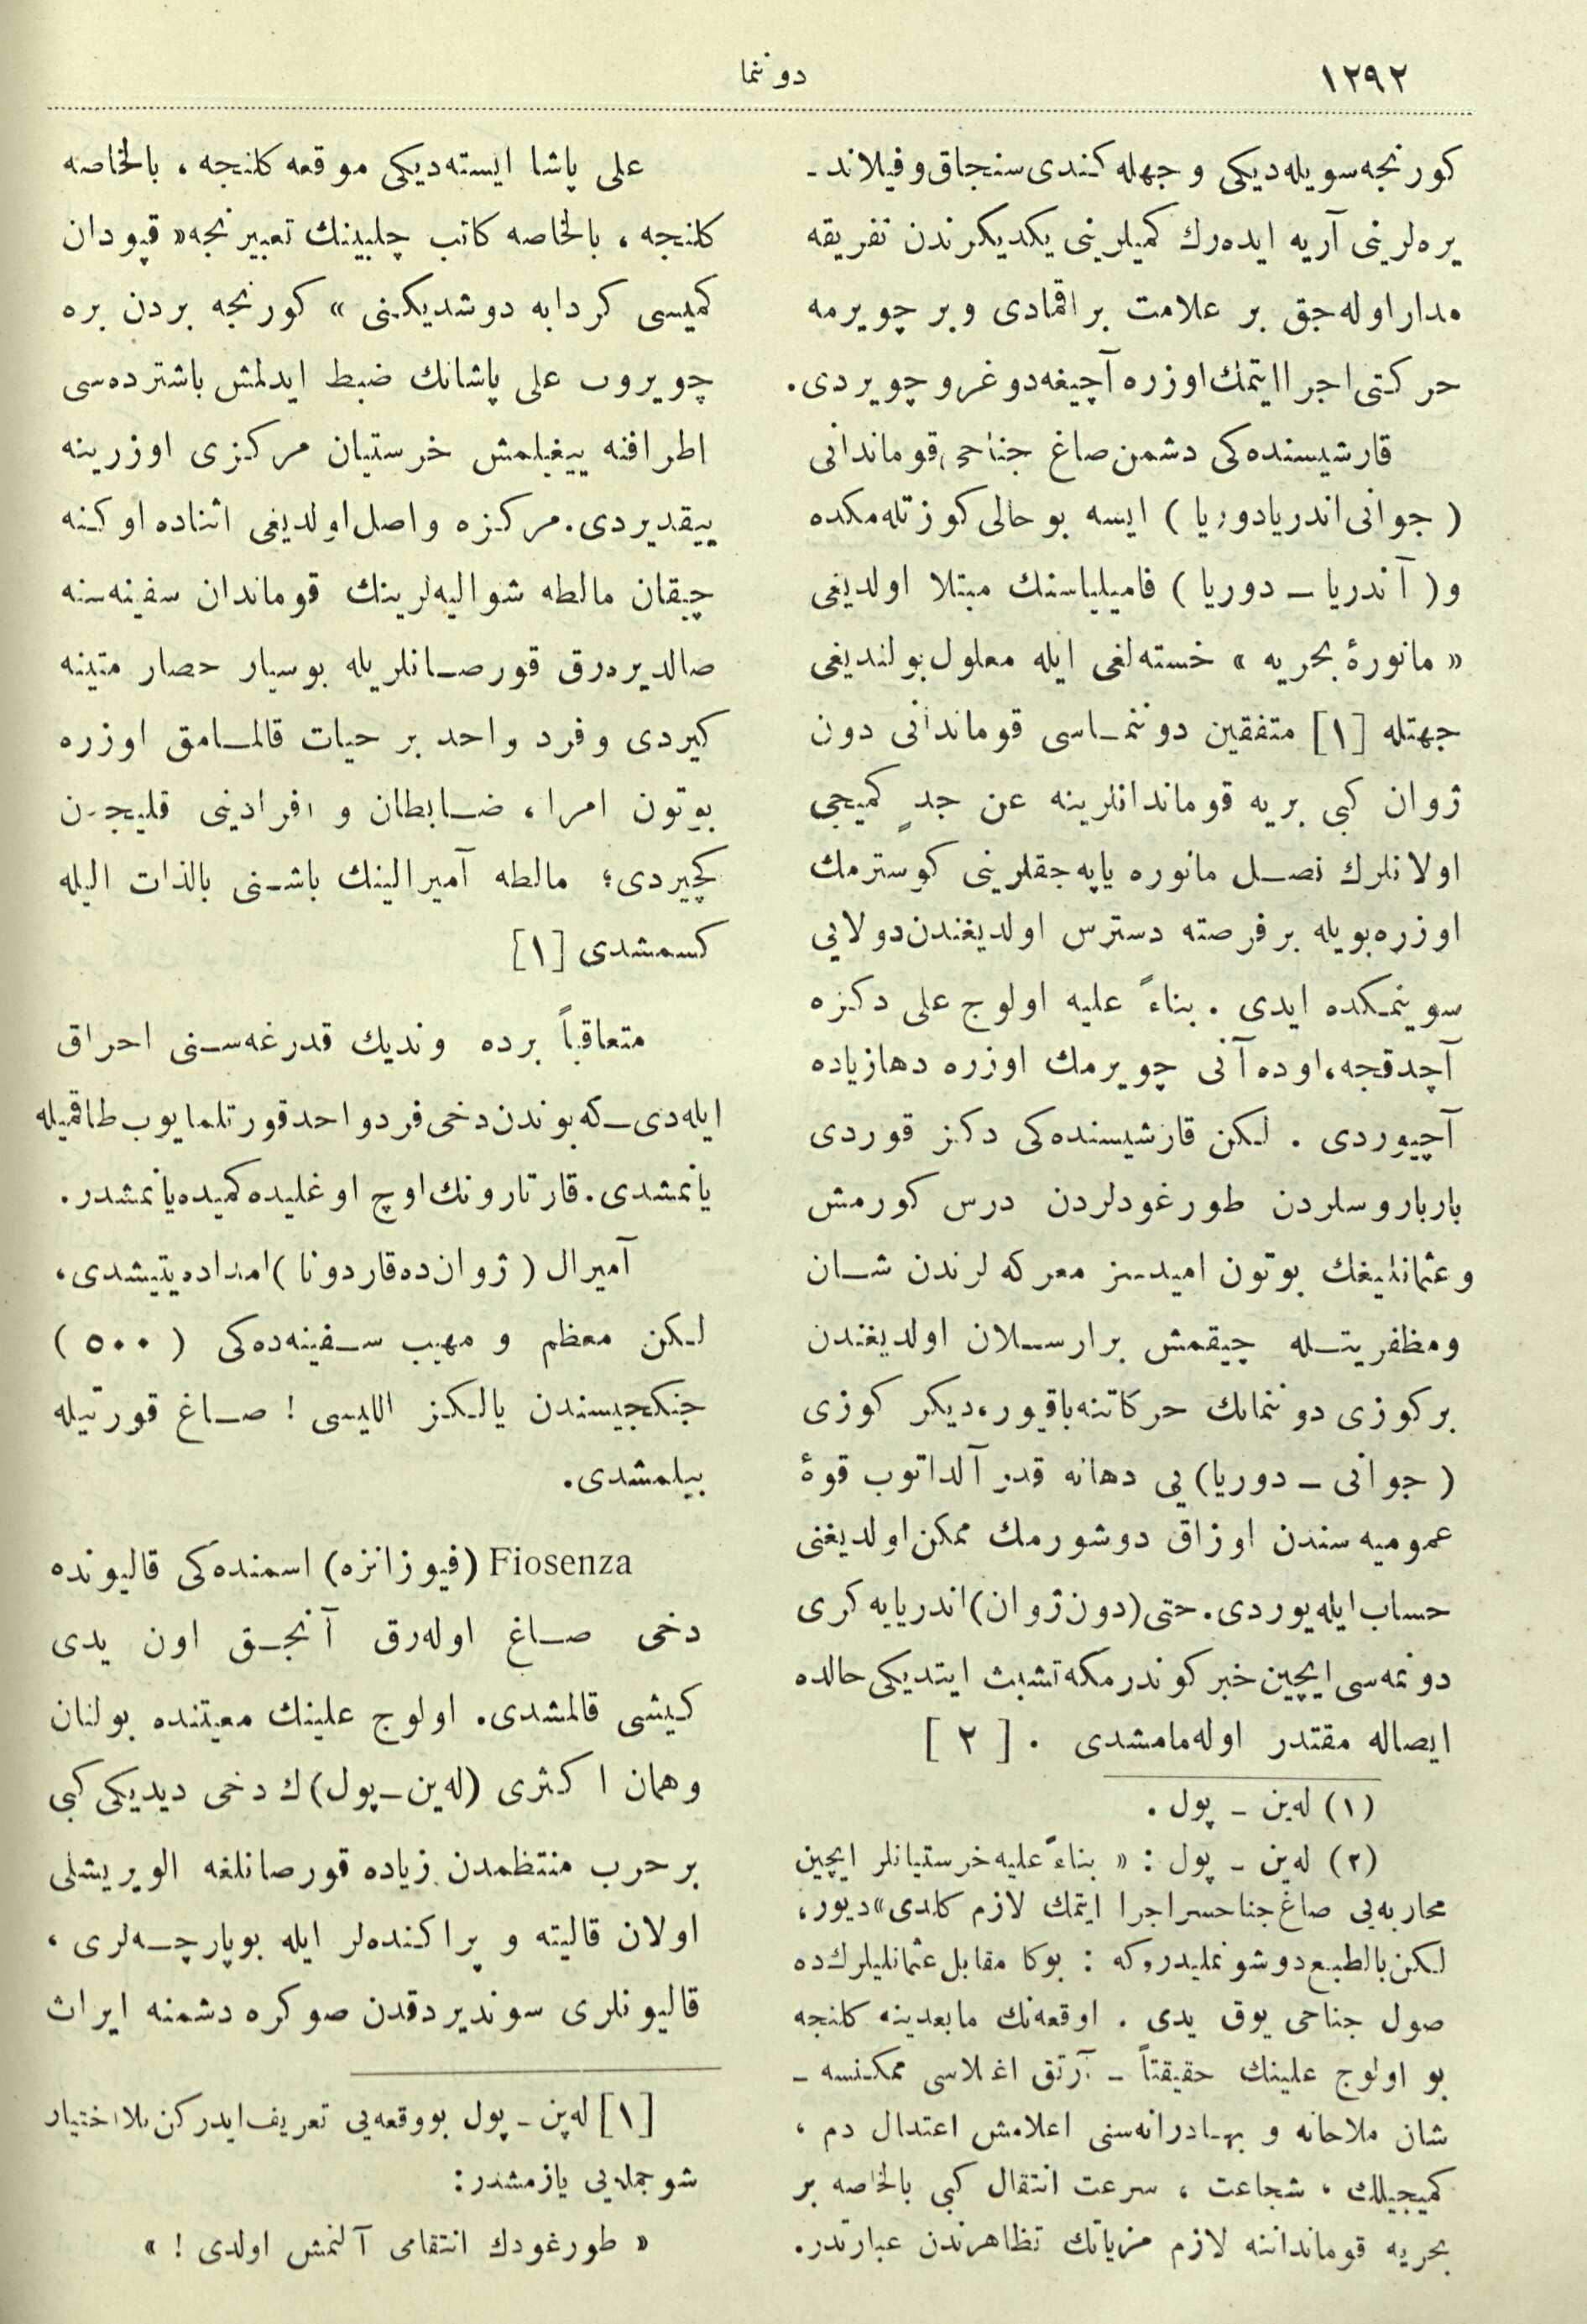 ١٢٩٢
دوننما
كورنجه سويله‌ديكى وجهله كندى سنجاق و فيلاند-
يره‌لرينى آريه ايده‌رك كميلرينى يكديكرندن تفريقه
مدار اوله‌جق بر علامت براقمادى وبر چويرمه
حركتى اجرا ايتمك اوزره آچيغه دوغرو چويردى.
قارشيسنده‌كى دشمن صاغ جناحى قوماندانى
( جوانى اندريادوريا ) ايسه بو حالى كوزتله‌مكده
و( آندريا ــ دوريا ) فاميلياسنك مبتلا اولديغى
« مانورۀ بحريه » خسته‌لغى ايله معلول بولنديغى
جهتله [١] متفقين دوننماسى قوماندانى دون
ژوان كبى بريه قوماندانلرينه عن جدٍ كميجى
اولانلرك نصل مانوره ياپه‌جقلرينى كوسترمك
اوزره بويله برفرصته دسترس اولديغندن دولايى
سوينمكده ايدى . بناءً عليه اولوج على دكزه
آچدقجه، اوده آنى چويرمك اوزره دها زياده
آچيوردى . لكن قارشيسنده‌كى دكز قوردى
بارباروسلردن طورغودلردن درس كورمش
وعثمانليغك بوتون اميدسز معركه لرندن شان
ومظفريتله چيقمش برارسلان اولديغندن
بركوزى دوننمانك حركاتنه باقيور، ديكر كوزى
( جوانى ــ دوريا) يى دهانه قدر آلداتوب قوۀ
عموميه سندن اوزاق دوشورمك ممكن اولديغنى
حساب ايله‌يوردى. حتى (دون ژوان) اندريايه كرى
دونمه‌سى ايچين خبر كوندرمكه تشبث ايتديكى حالده
ايصاله مقتدر اوله‌مامشدى . [ ٢ ]
(١) له‌ين ـ پول .
(٢) له‌ين ـ پول : « بناءً عليه خرستيانلر ايچين
محاربه‌يى صاغ جناحسز اجرا ايتمك لازم كلدى» ديور،
لكن بالطبع دوشونمليدروكه : بوكا مقابل عثمانليلرك ده
صول جناحى يوق يدى . اوقعه‌نك مابعدينه كلنجه
بو اولوج علينك حقيقتاً ـ آرتق اغلاسى ممكنسه ـ
شان ملاحانه و بهادرانه‌سنى اعلامش اعتدال دم ،
كميجيلك ، شجاعت ، سرعت انتقال كبى بالخاصه بر
بحريه قوماندانه لازم مزياتك تظاهرندن عبارتدر.
على پاشا ايسته‌ديكى موقعه كلنجه ، بالخاصه
كلنجه ، بالخاصه كاتب چلبينك تعبيرنجه « قپودان
كميسى كردابه دوشديكنى » كورنجه بردن بره
چويروب على پاشانك ضبط ايدلمش باشترده‌سى
اطرافنه ييغيلمش خرستيان مركزى اوزرينه
ييقديردى. مركزه واصل اولديغى اثناده اوكنه
چيقان مالطه شواليه‌لرينك قوماندان سفينه‌سنه
صالديره‌رق قورصانلريله بوسيار حصار متينه
كيردى وفرد واحد بر حيات قالمامق اوزره
بوتون امرا ، ضابطان و افرادينى قليجدن
كچيردى؛ مالطه آميرالينك باشنى بالذات اليله
كسمشدى [١]
متعاقباً برده ونديك قدرغه‌سنى احراق
ايله‌دى ــ كه بوندن دخى فرد واحد قورتلمايوب طاقميله
يانمشدى. قارتارونك اوچ اوغليده كميده يانمشدر.
آميرال ( ژوان ده قاردونا ) امداده يتيشدى،
لكن معظم و مهيب سفينه‌ده‌كى ( ٥٠٠ )
جنكجيسندن يالكز الليسى ! صاغ قورتيله
بيلمشدى.
Fiosenza (فيوزانزه) اسمنده‌كى قاليونده
دخى صاغ اوله‌رق آنجق اون يدى
كيشى قالمشدى. اولوج علينك معيتنده بولنان
وهمان اكثرى (له‌ين ــ پول) ك دخى ديديكى كبى
برحرب منتظمدن زياده قورصانلغه الويريشلى
اولان قاليته و پراكنده‌لر ايله بوپارچه‌لرى ،
قاليونلرى سونديردكدن صوكره دشمنه ايراث
[١] له‌ين ـ پول بووقعه‌يى تعريف ايدركن بلااختيار
شو جمله‌يى يازمشدر:
« طورغودك انتقامى آلنمش اولدى ! »